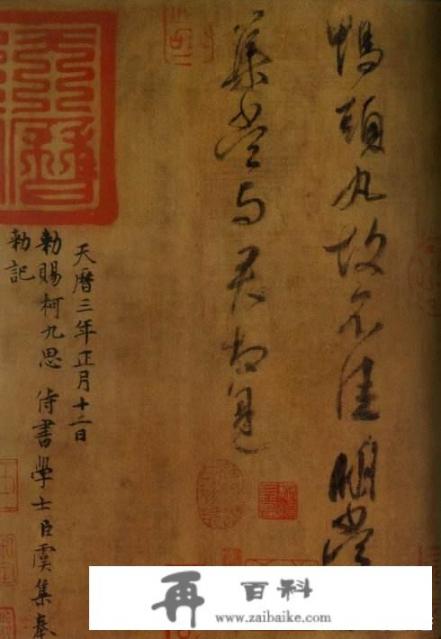 鴨頭丸故不佳明當
集當与君相見
天曆三年正月十二日
勅賜柯九思 侍書學士臣虞集奉
勅記
再 百科
www.zaibaike.com